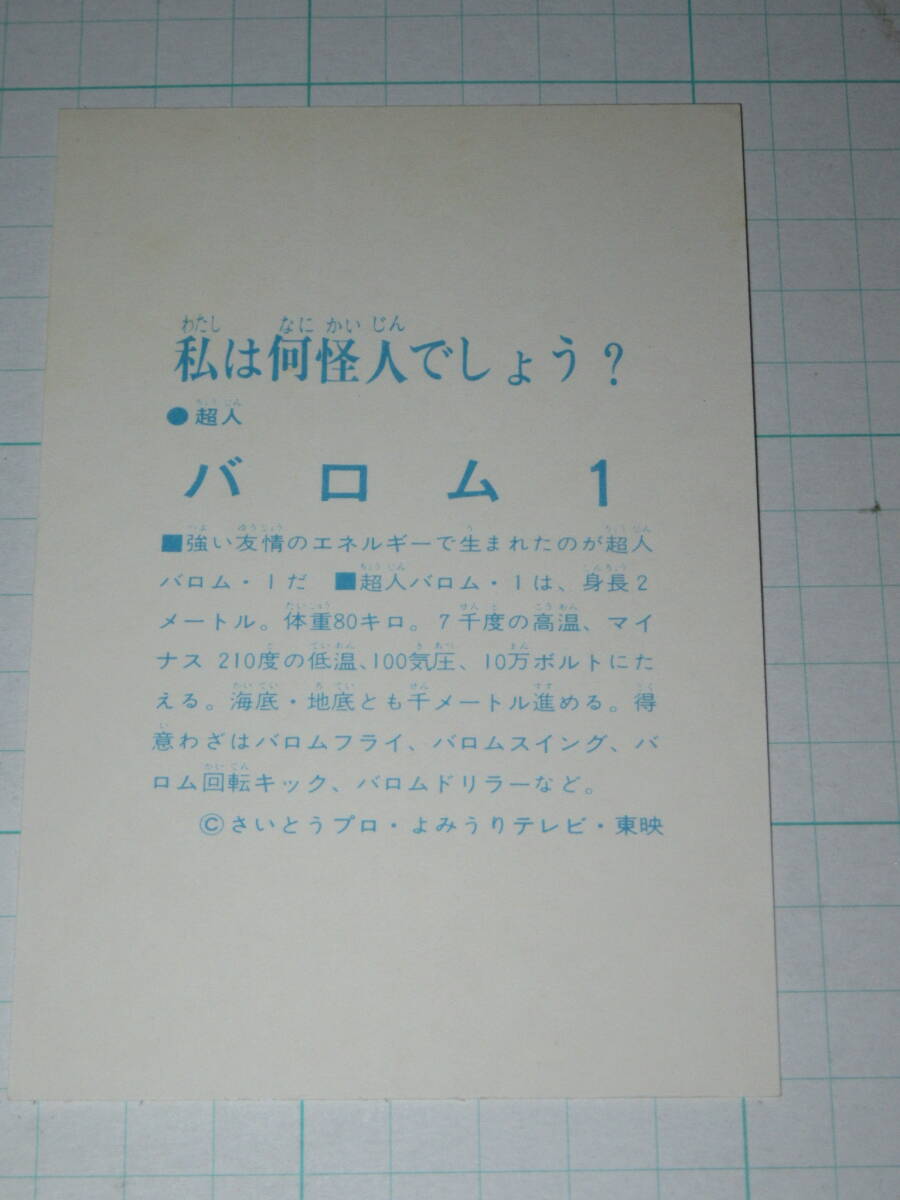 私は何怪人でしょう？
●超人
バロム1
■強い友情のエネルギーで生まれたのが超人
バロム・1だ ■超人バロム・1は、身長2
メートル。体重80キロ。7千度の高温、マイ
ナス210度の低温、100気圧、10万ボルトにた
える。海底・地底とも千メートル進める。得
意わざはバロムフライ、バロムスイング、バ
ロム回転キック、バロムドリラーなど。
©さいとうプロ・よみうりテレビ・東映